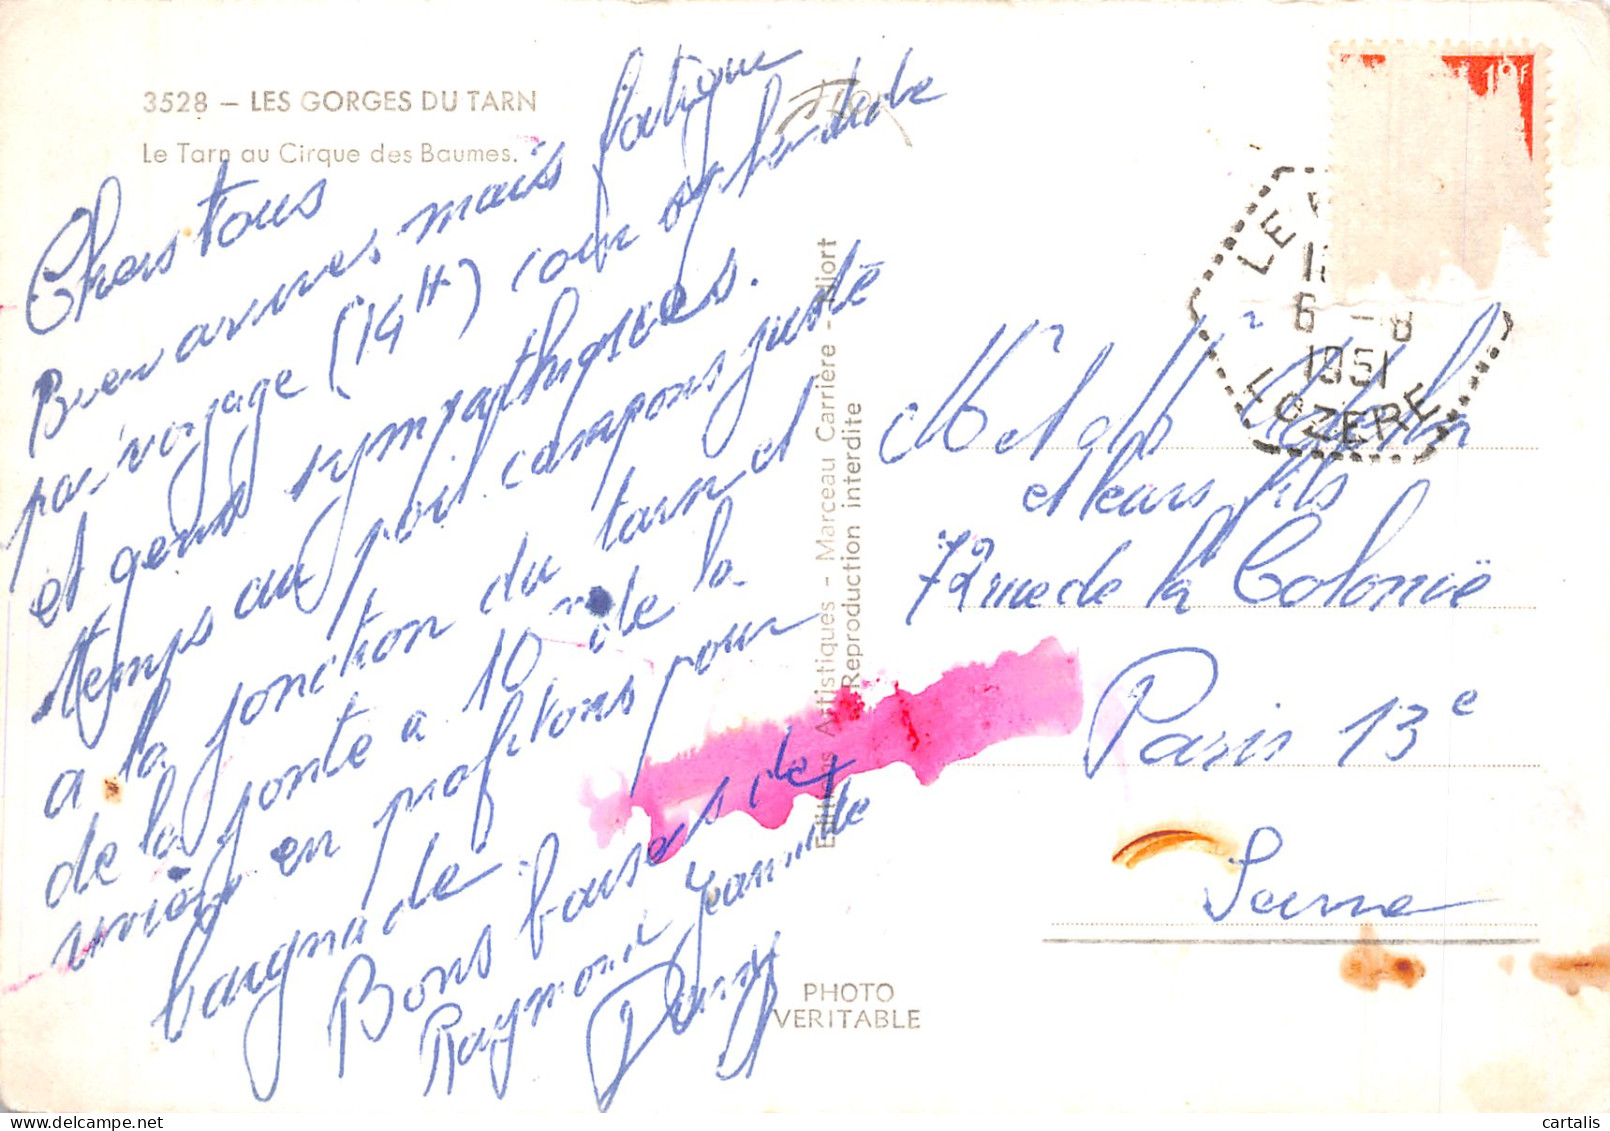 3528 – LES GORGES DU TARN
Le Tarn au Cirque des Baumes.
Chers tous
Bien arrivés mais fatigue
par voyage (14H) coin splendide
et gens sympathiques.
temps au poil campons juste
a la jonction du tarn et
de la jonte a 10 m de la
rivière en profitons pour
baignade
Bons baisers de
Raymond Jeannine
Dany
Editions Artistiques – Marceau Carrière – Niort
Reproduction interdite
PHOTO
VERITABLE
1 F
LE
6 – 8
1951
LOZERE
M et
et leurs fils
72 rue de la Colonië
Paris 13e
Seine
cartalis